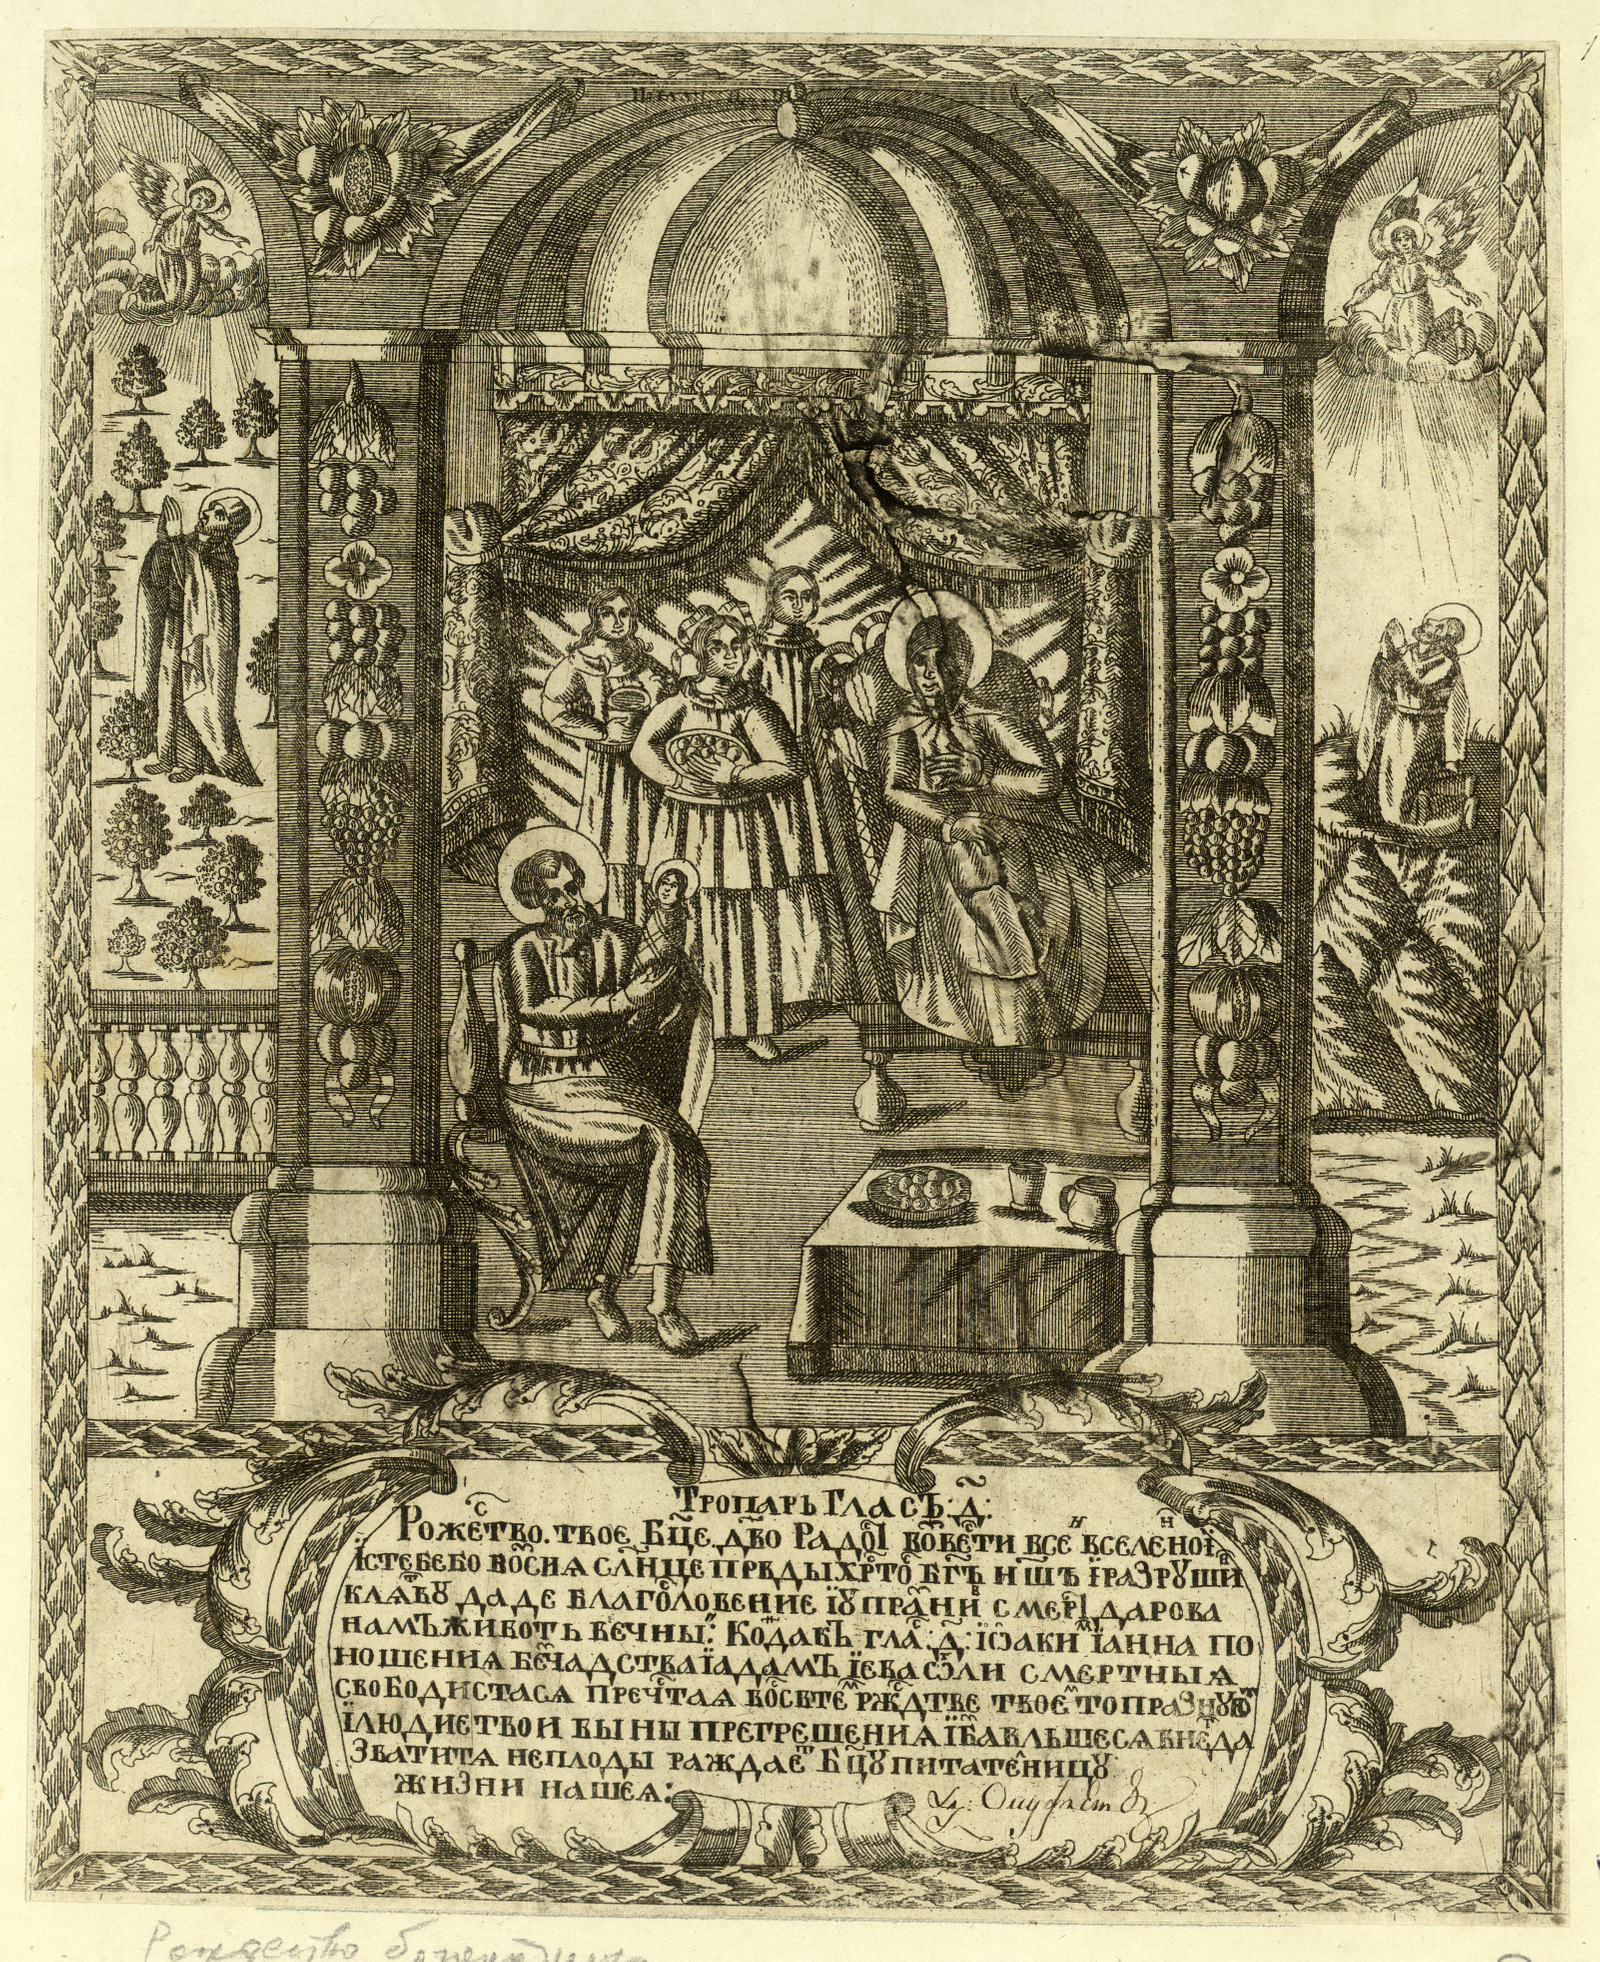 Тропарь Гласъ: д҃:
Рожество. твое Бц҃е дв҃о Радость вовести все вселенои
ꙇстебебо восиѧ слн҃це првды хрт҃осъ бг҃ъ нашъ ї разрꙋши
клѧтвꙋ даде благословение їꙋпраꙁнивъ смерть дарова
намъ животъ вечныи: Кодакъ гла. д҃: їѡаким їанна по
ношениѧ бечадстваїадамъ їева ѿ тли смертныѧ
свободистасѧ пречтаѧ восвтем ржсдтве твоем то праꙁнꙋют
їлюдие твои вины прегрешениѧ їꙁбавльшесѧ внегда
ꙁватити неплоды раждает бц҃ꙋ питателницꙋ
жиꙁни нашеѧ:
Рождество богородицы